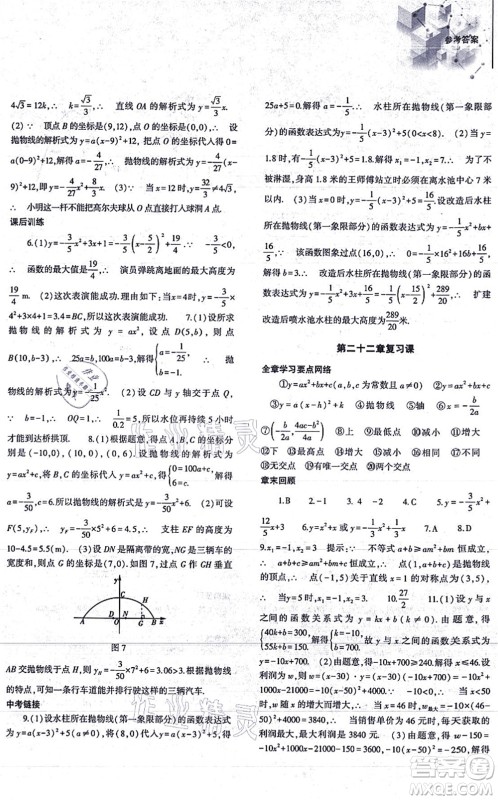 参考答案
4√3=12k, ∴ k=√3/3, ∴ 直线 OA 的解析式为 y=√3/3 x.
(2) ∵ 顶点 B 的坐标是(9,12),点 O 的坐标是(0,0) ∴ 设
抛物线的解析式为 y=a(x-9)²+12,把点 O 的坐标代入得 0=
a(0-9)²+12,解得 a=-4/27, ∴ 抛物线的解析式为 y=-4/27(x-
9)²+12,即 y=-4/27x²+8/3x. (3) ∵ 当 x=12 时,y=32/3≠4√3,
∴ 小明这一杆不能把高尔夫球从 O 点直接打入球洞 A 点.
课后训练
6.(1)y=-3/5x²+3x+1=-3/5(x-5/2)²+19/4. ∵ -3/5<0,
∴ 函数的最大值是19/4, ∴ 演员弹跳离地面的最大高度是
19/4 m. (2)这次表演能成功. 理由如下:当 x=4时,y=-3/5×
4²+3×4+1=3.4=BC,所以这次表演成功. 7.(1)设所求
抛物线的解析式为 y=ax², 设 D(5,b), 则
B(10,b-3), ∴ 25a=b,100a=b-3,解得 a=-1/25,b=-1, ∴ 抛
物线的解析式为 y=-1/25x². (2) ∵ b=-1, ∴ OQ=1, ∴ 1/0.2=5, ∴ 再持续5小时水位才
能到达桥拱顶. 8.(1)根据题意,得点 A,B,C 的坐标分别为
(-10,0),(10,0),(0,6), ∴ 设抛物线的解析式为
y=ax²+c,将 B,C 的坐标代入 y=ax²+c,得{6=c, 0=100a+c,解得 a=
-3/50,c=6, ∴ 抛物线的解析式是 y=-3/50x²+6. (2)可设
F(5,y_F), ∴ y_F=-3/50×5²+6=4.5, ∴ 支柱 EF 的高度为
10-4.5=5.5(m). (3)设 DN 是隔离带的宽,NG 是三辆车的
宽度和,则点 G 的坐标是(7,0),如图7,过点 G 作 GH 垂直
y
C
H
A
O
D
N
G
B
x
图 7
AB 交抛物线于点 H,则 y_H=-3/50×7²+6=3.06>3.根据抛物线
的特点,可知一条行车道能并排行驶这样的三辆汽车.
中考链接
9.(1)设水柱所在抛物线(第一象限部分)的函数表达式
为 y=a(x-3)²+5(a≠0),将(8,0)代入 y=a(x-3)²+5,得
25a+5=0.解得 a=-1/5. ∴ 水柱所在抛物线(第一象限部
分)的函数表达式为 y=-1/5(x-3)²+5(0<x<8). (2)当 y=
1.8时,有-1/5(x-3)²+5=1.8.解得 x₁=-1,x₂=7. ∴ 为了不
被淋湿,身高 1.8 米的王师傅站立时必须在离水池中心 7 米
以内. (3)当 x=0 时,y=-1/5(x-3)²+5=16/5,设改造后水柱
所在抛物线(第一象限部分)的函数表达式为 y=-1/5x²+bx+
16/5, ∵ 该函数图象过点(16,0), ∴ 0=-1/5×16²+16b+16/5,解
得 b=3. ∴ 改造后水柱所在抛物线(第一象限部分)的函数
表达式为 y=-1/5x²+3x+16/5=-1/5(x-15/2)²+289/20. ∴ 扩建
改造后喷水池水柱的最大高度为289/20米.
第二十二章复习课
全章学习要点网络
①y=ax²+bx+c(a,b,c 为常数,a≠0) ②y=ax²
③y=ax²+bx+c ④抛物线 ⑤x=-b/2a ⑥x=-b/2a
⑦(-b/2a, (4ac-b²)/4a) ⑧减小 ⑨增大 ⑩增大 ⑪减小
⑫下 ⑬最高点 ⑭最小 ⑮最大 ⑯不同
⑰无交点 ⑱有一个交点 ⑲两个交点
章末回顾
1.B 2.4 3.-4 -2 4.C 5.-3 6.y=-1/3x²+
2/3x+5/3或 y=-1/3x²-2/3x+5/3 7.A 8.D
9.x=m是方程 ∵ 不等式 a+b≥am²+bm 恒成立, ∴
a+b+c≥am²+bm+c, ∴ 当 x=1 时,y 有最大值为 5,
∴ a+b+c=5.(3,5)关于直线 x=1 的对称点为(-1,5),
∴ x₁=3,x₂=-1. 10.27/2 11.(1)根据题意,设 y 与 x
之间的函数关系式为 y=kx+b,把(40,300),(55,150)代
入,得{40k+b=300, 55k+b=150.解得{k=-10, b=700. ∴ y 与 x 之间的函数关系式
为 y=-10x+700. (2)由题意,得-10x+700≥240,解得 x≤46,
设利润为 w=(x-30)y=(x-30)(-10x+700)=
-10x²+1000x-21000=-10(x-50)²+4000, ∵ -10<0, ∴ x<50
时,w 随 x 的增大而增大, ∴ x=46 时,w最大=-10×(46-
50)²+4000=3840, ∴ 当销售单价为 46 元时,每天获取的
利润最大,最大利润是 3840 元. (3)由题意,得 w-150=
-10x²+1000x-21000-150=3600,-10(x-50)²=-250.解得
作业精灵
作业精灵